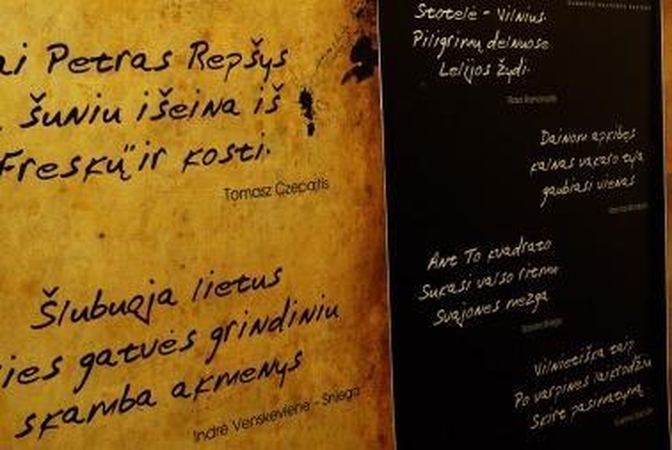 ai Petras Repšys
šuniu išeina iš
Freskų ir kosti.
Tomasz Czepajtis
Šlubuoja lietus
ies gatvės grindiniu
skamba akmenys
Indrė Venskevienė - Sniega
Stotelė - Vilnius.
Piligrimų delnuose
Lelijos žydi.
Dainom apkibęs
kalnas vakaro tyla
gaubiasi vienas
Ant To kvadrato
Sukasi valso ritmu
Svajonės mezga
Vilnietiška taip
Po varpinės laikrodžiu
Skirt pasimatymą